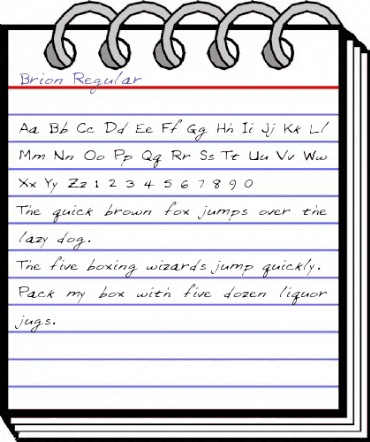 Brion Regular
Aa Bb Cc Dd Ee Ff Gg Hh Ii Jj Kk Ll
Mm Nn Oo Pp Qq Rr Ss Tt Uu Vv Ww
Xx Yy Zz 1 2 3 4 5 6 7 8 9 0
The quick brown fox jumps over the
lazy dog.
The five boxing wizards jump quickly.
Pack my box with five dozen liquor
jugs.